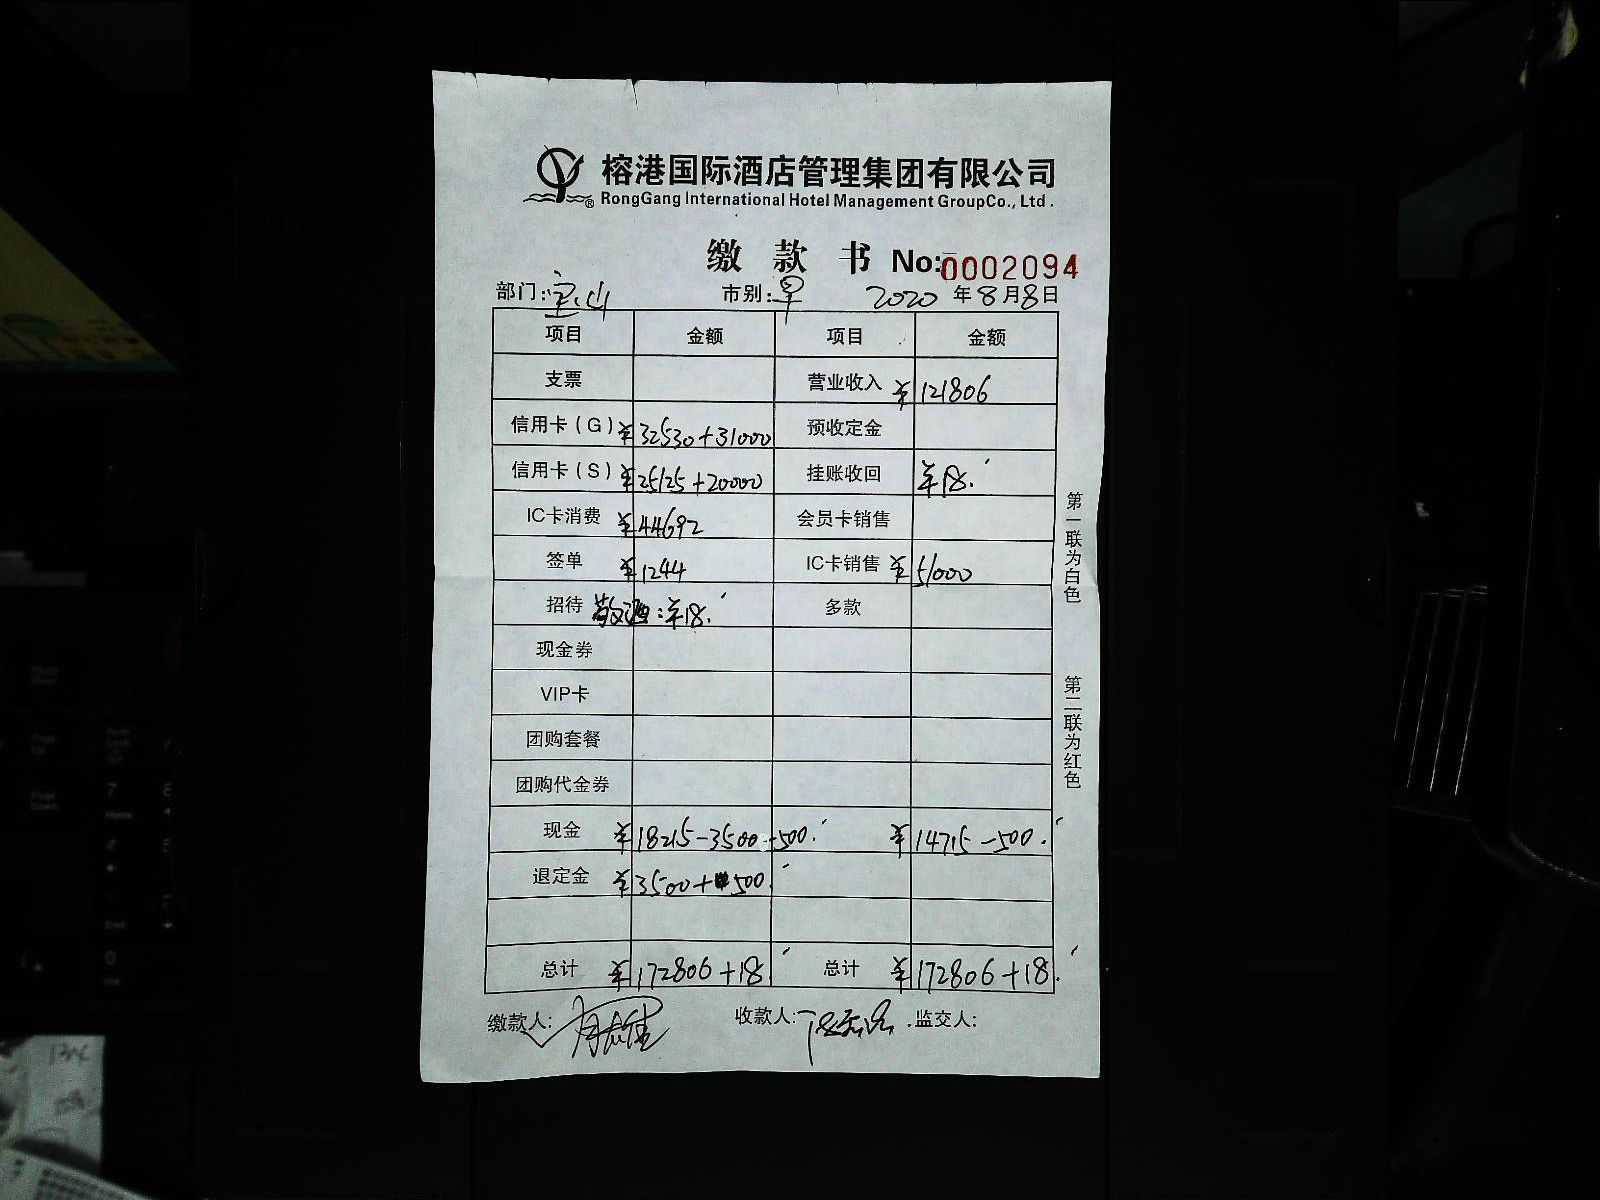 榕港国际酒店管理集团有限公司
® RongGang International Hotel Management GroupCo., Ltd.
缴 款 书 No:0002094
部门:宝山 市别:早 2020年8月8日
项目 金额 项目 金额
支票 营业收入 ¥121806
信用卡(G) ¥32530+31000 预收定金
信用卡(S) ¥25125+20000 挂账收回 ¥18.
IC卡消费 ¥44692 会员卡销售
签单 ¥1244 IC卡销售 ¥51000
招待 敬酒:¥18. 多款
现金券
VIP卡
团购套餐
团购代金券
现金 ¥18215-3500-500. ¥14715-500.
退定金 ¥3500+500.
总计 ¥172806+18 总计 ¥172806+18.
缴款人: 收款人: 监交人:
第一联为白色
第二联为红色